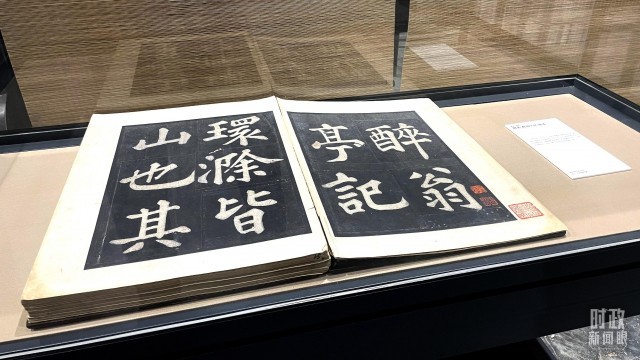 醉翁
亭記
環滁皆
山也其
时政
新闻眼